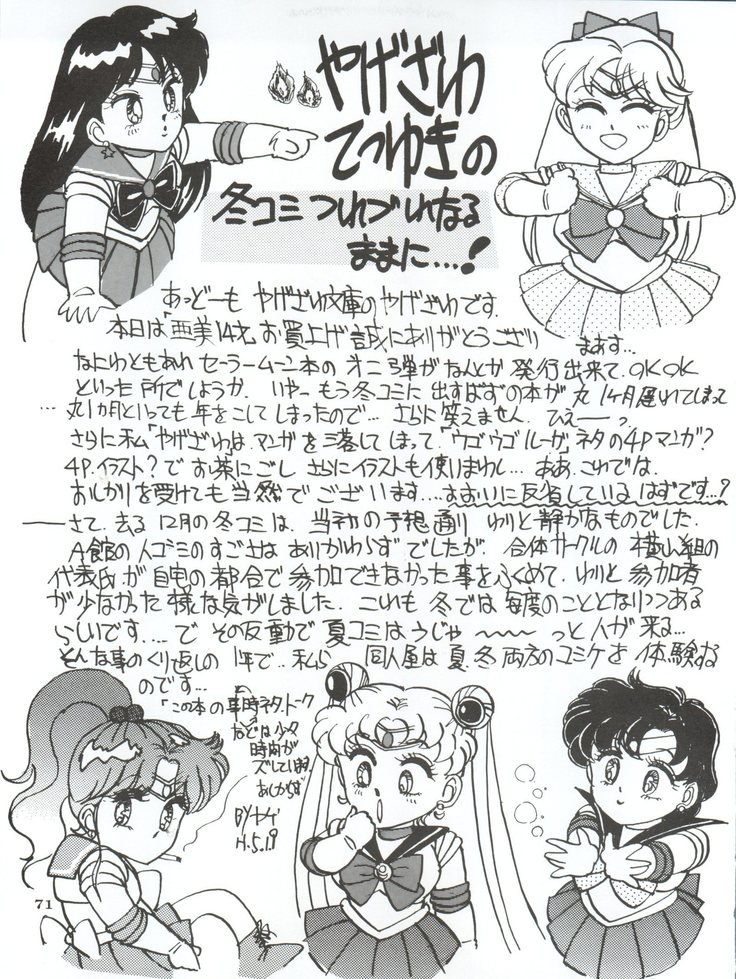 やげざわ
てつゆきの
冬コミつれづれなる
ままに…!
あっどーも やげざわ文庫のやげざわです.
本日は「亜美14才」お買上げ誠にありがとうござり まぁす…
なにわともあれ セーラームーン本の オ二弾がなんとか 発行出来て. OKOK
といった所でしょうか. いやーもう冬コミに 出すはずの本が 丸1ヶ月遅れてしまって
…丸1か月といっても 年をこしてしまったので… さらに笑えません. ひえーーっ.
さらに私「やげざわ」は. マンガを三落してしまって.「ウゴウゴルーガ」ネタの4Pマンガ?
4P.イラスト? で お茶にごし さらにイラストも使いまわし… ああ. これでは.
おしかりを受けても当然でございます…. おおいに反省しているはずです…?
——さて. 去る 12月の冬コミは. 当初の予想通り わりと静かなものでした.
A館の人ゴミのすごさは ありかわらずでしたが. 合体サークルの 横山組の
代表氏が 自宅の都合で参加できなかった事をふくめて. わりと参加者
が少なかった 様な気がしました. これも 冬では 毎度のこととなりつつある
らしいです…. で その反動で夏コミはうじゃ〜〜〜っと人が来る…
そんな事のくり返しの1年で.. 私ら 同人屋は 夏. 冬 両方のコミケを 体験するのです…
「この本の事時ネタ.トーク
などは少々
時間が
ズレています.
あしからず
BYヤゲ
H.5.1.9
71